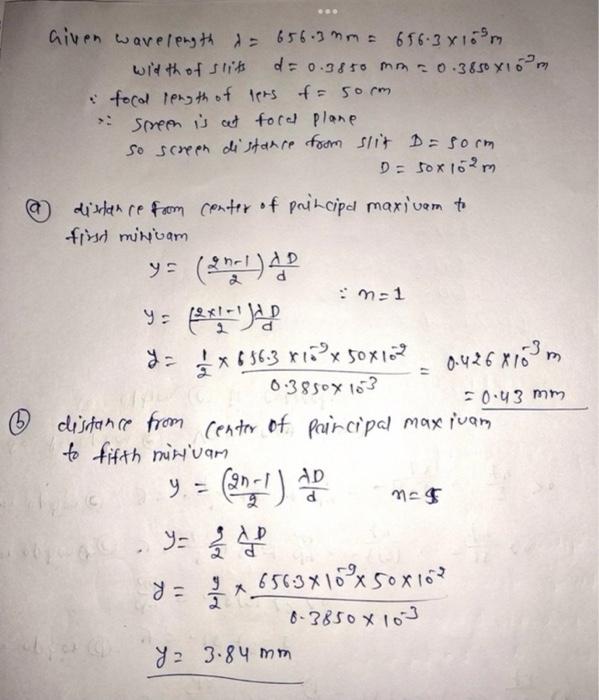 Given wavelength λ = 656.3 nm = 656.3 × 10⁻⁹ m
width of slits d = 0.3850 mm = 0.3850 × 10⁻³ m
∵ focal length of lens f = 50 cm
∵ screen is at focal plane
so screen distance from slit D = 50 cm
D = 50 × 10⁻² m
(a) distance from center of principal maxivam to
first minivam
y = (2n-1 / 2) λD / d
∵ n = 1
y = (2×1-1 / 2) λD / d
y = 1/2 × 656.3 × 10⁻⁹ × 50 × 10⁻² / 0.3850 × 10⁻³ = 0.426 × 10⁻³ m
= 0.43 mm
(b) distance from center of principal maxivam
to fifth minivam
y = (2n-1 / 2) λD / d n = 5
y = 9/2 λD / d
y = 9/2 × 656.3 × 10⁻⁹ × 50 × 10⁻² / 0.3850 × 10⁻³
y = 3.84 mm